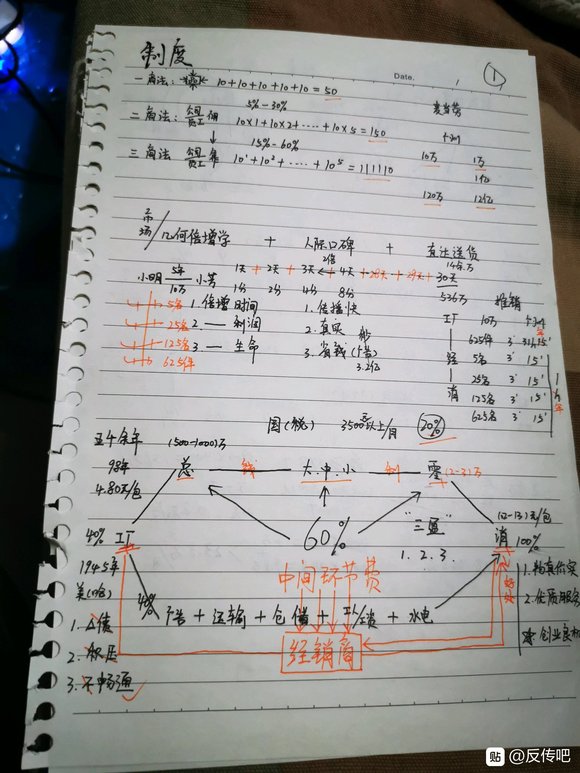 制度
Date.
①
一角法: 10+10+10+10+10=50
5%-30%
二角法: 公司 员工 佣 10×1+10×2+····+10×5=150
15%-60%
三角法 公司 员工 10¹+10²+····+10⁵=111110
10万 1万
1亿
120万 12亿
市场/几何倍增学 + 人际口碑 + 直达送货
2倍
小明 5年 10万 小芳
1天+2天+3天 4天+28天+29天+30天
1分 2分 4分 8分
536万
5名 1.倍增时间
25名 2 — 利润
125名 3 — 生命
625件
1.传播快
2.真实
3.省钱(广告)
3.2亿
推销
工厂 10万
625件 3'
经 5名 3' 15'
25名 3' 15'
消 125名 3' 15'
625名 3' 15'
1个年
国(税) 3500元以上/月 20%
五千余年 (500-1000)万
98年
4.80元/包
总 钱 大.中.小 利 零 (2-3)万
(12-13)元/包
40% 工厂 60% "三直" 消 100%
1. 2. 3.
中间环节费
1945年
美(哈)
40% 广告+运输+仓储+工/资+水电
经销商
好处
1.物真价实
2.优质服务
创业良机
1.△债
2.积压
3.不畅通
贴 @反传吧